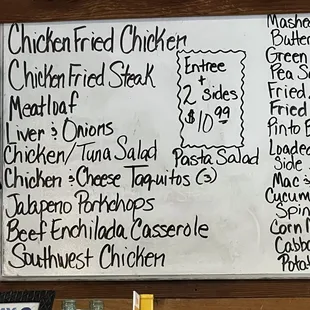 Chicken Fried Chicken
Chicken Fried Steak
Meatloaf
Liver & Onions
Chicken/Tuna Salad
Chicken & Cheese Taquitos (3)
Jalapeno Porkchops
Beef Enchilada Casserole
Southwest Chicken
Entree
+
2 Sides
$10.99
Pasta Salad
Mashed
Butter
Green
Pea Sa
Fried
Fried
Pinto B
Loaded
Side
Mac &
Cucum
Spin
Corn
Cabba
Potat